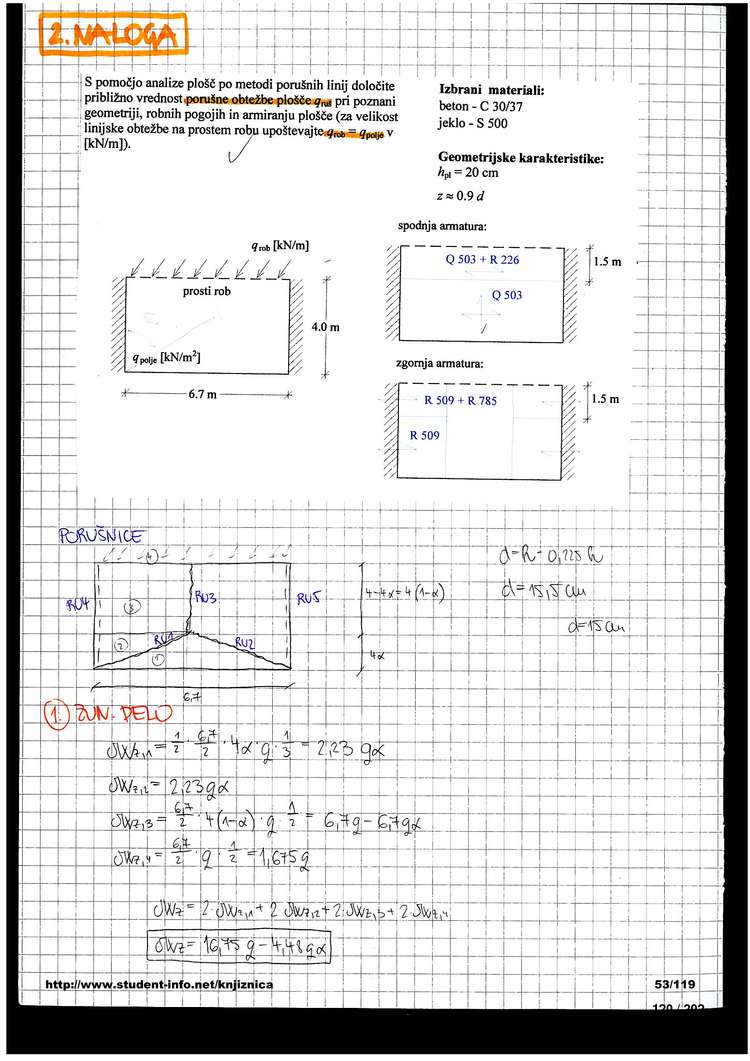 2. NALOGA
S pomočjo analize plošč po metodi porušnih linij določite
približno vrednost porušne obtežbe plošče q_ruš pri poznani
geometriji, robnih pogojih in armiranju plošče (za velikost
linijske obtežbe na prostem robu upoštevajte q_rob = q_polje v
[kN/m]).
Izbrani materiali:
beton - C 30/37
jeklo - S 500
Geometrijske karakteristike:
h_pl = 20 cm
z ≈ 0.9 d
q_rob [kN/m]
prosti rob
4.0 m
q_polje [kN/m²]
6.7 m
spodnja armatura:
Q 503 + R 226
1.5 m
Q 503
zgornja armatura:
R 509 + R 785
1.5 m
R 509
PORUŠNICE
4
RU4
3
RU3
RU5
2
RU1
RU2
1
6,7
4-4α=4(1-α)
4α
d=15,5 cm
d=15 cm
1. ZUN. DELO
δWz,1 = 1/2 · 6,7/2 · 4α · q · 1/3 = 2,23 qα
δWz,2 = 2,23 qα
δWz,3 = 6,7/2 · 4(1-α) · q · 1/2 = 6,7q - 6,7qα
δWz,4 = 6,7/2 · q · 1/2 = 1,675 q
δWz = 2·δWz,1 + 2 δWz,2 + 2·δWz,3 + 2·δWz,4
δWz = 16,75 q - 4,48 qα
http://www.student-info.net/knjiznica
53/119
120 / 202